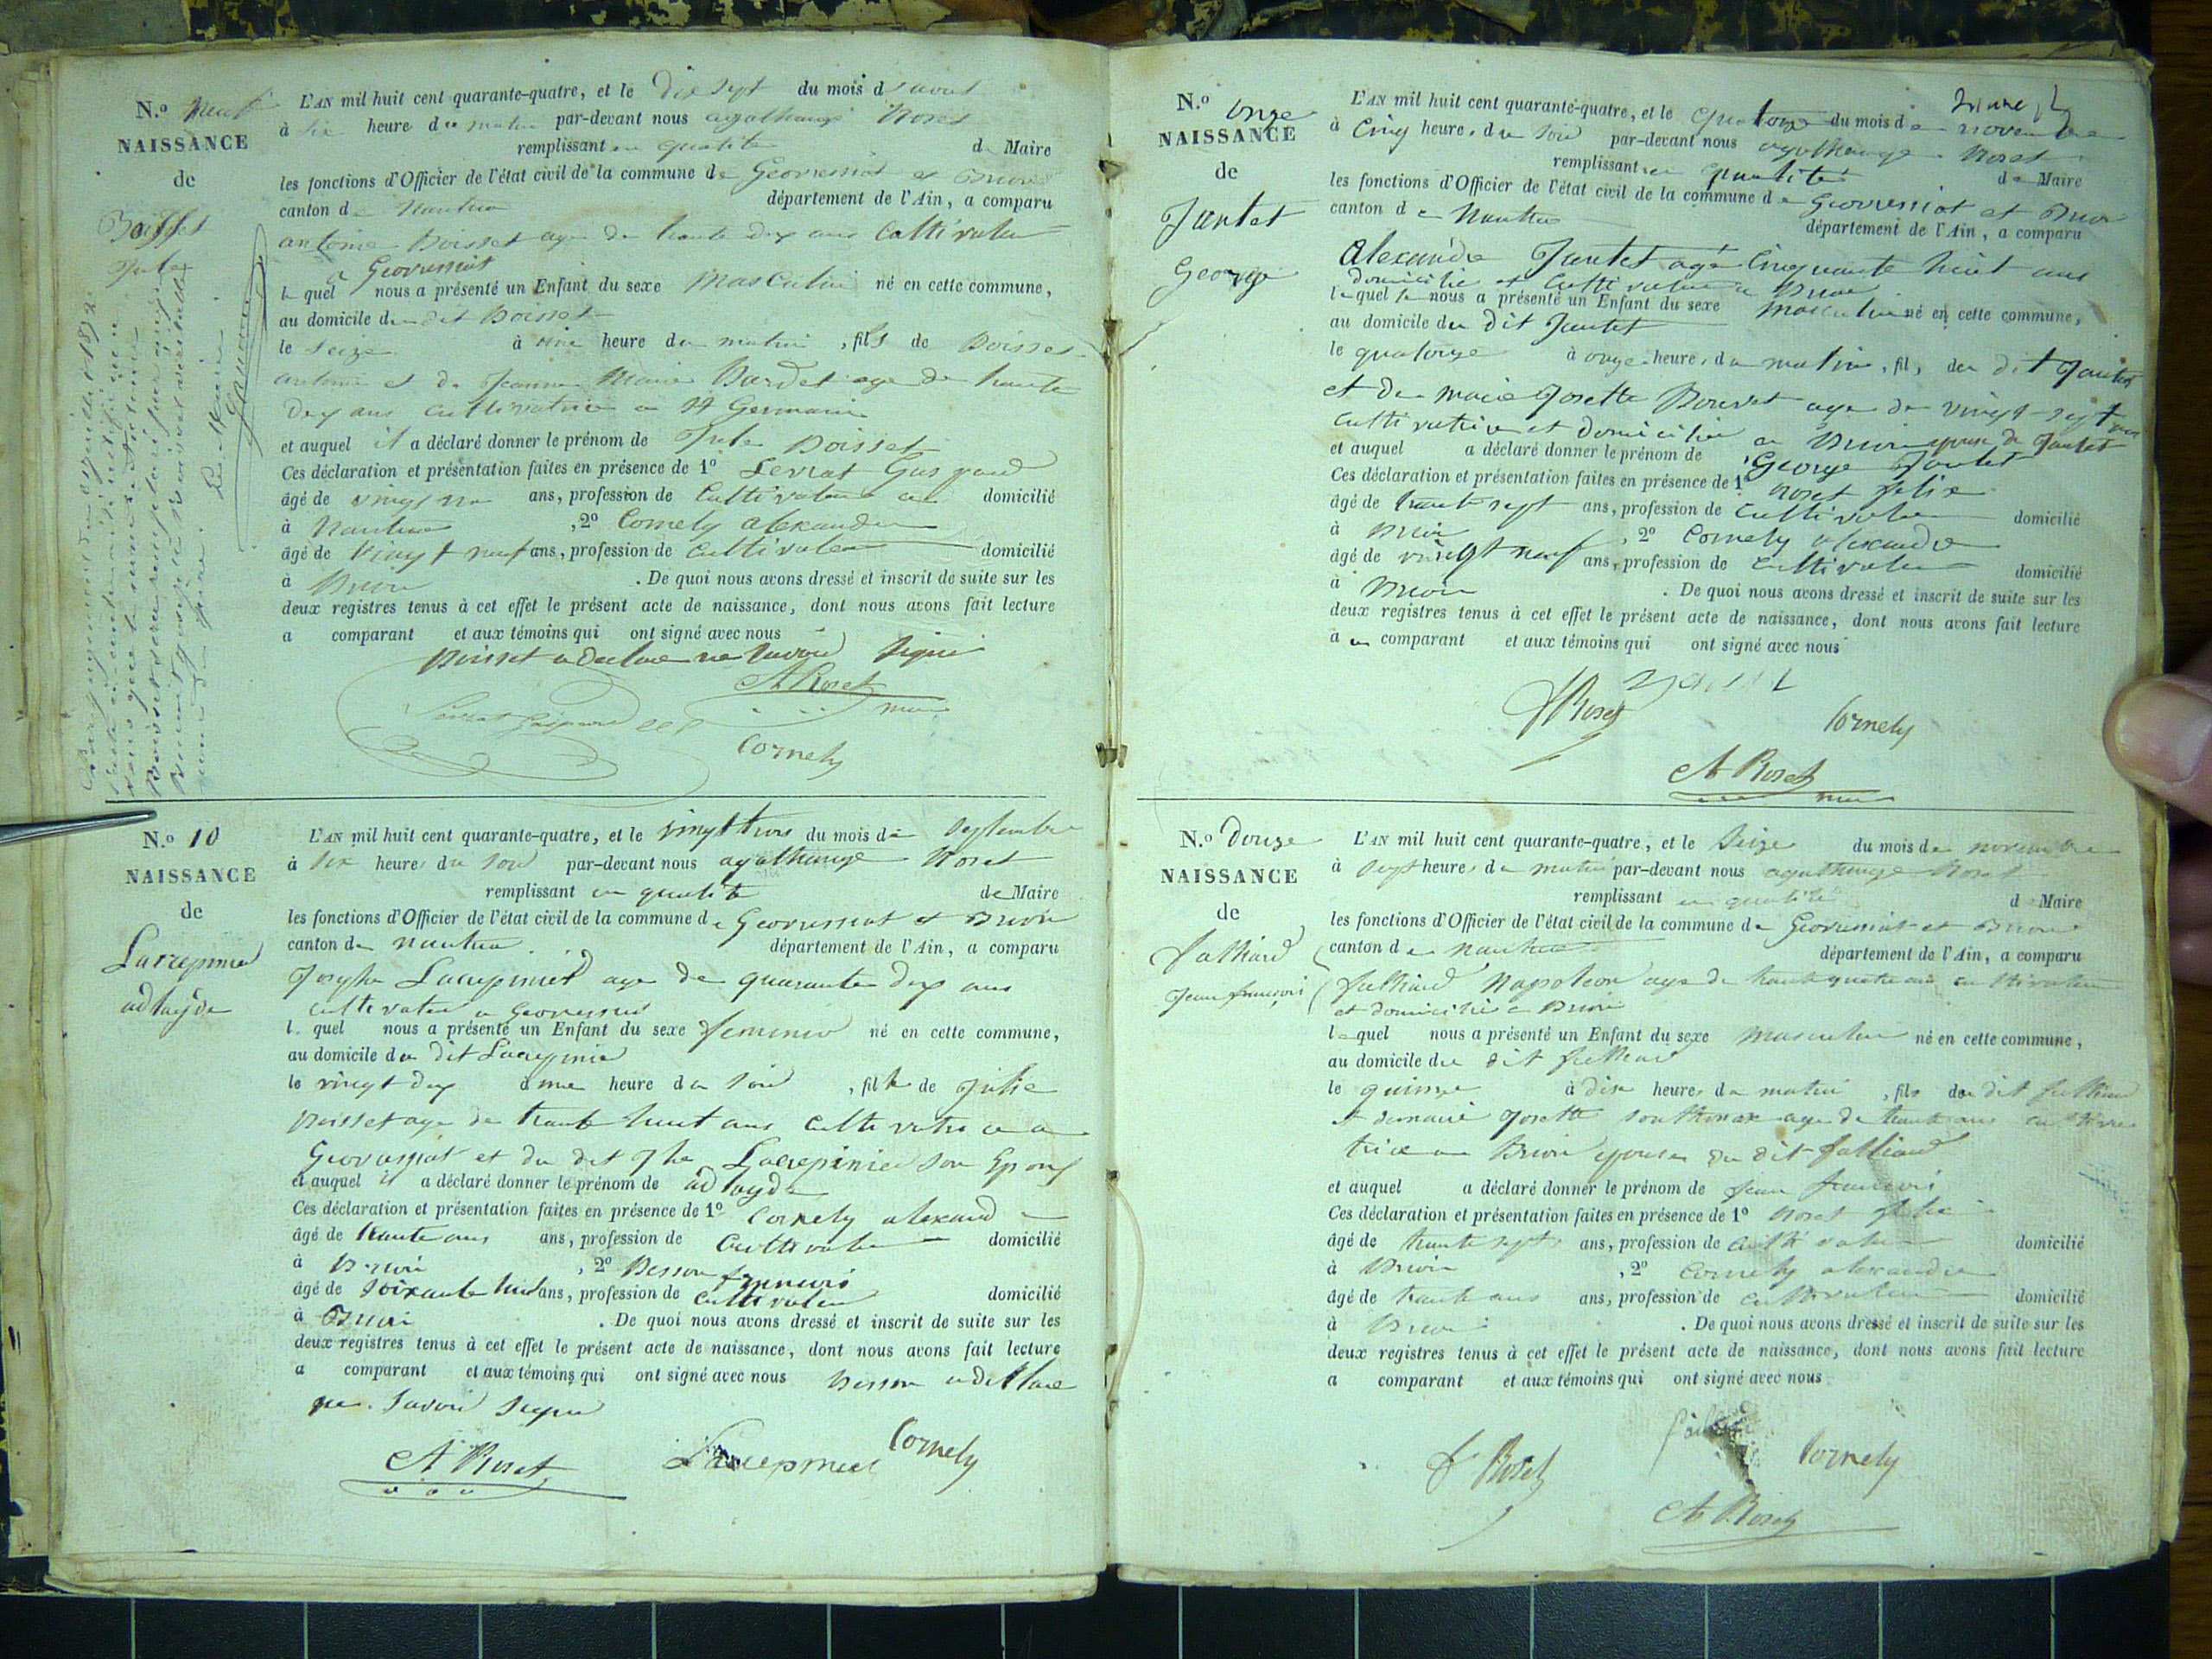 N.o neuf
NAISSANCE
de
Boisset
Jules
L'AN mil huit cent quarante-quatre, et le dix sept du mois d'aout
à six heure du matin par-devant nous agathange Roset
remplissant en qualité de Maire
les fonctions d'Officier de l'état civil de la commune de Geovressiat et Brion
canton de Nantua département de l'Ain, a comparu
antoine Boisset age de trente dix ans Cultivateur
a Geovressiat
le quel nous a présenté un Enfant du sexe Masculin né en cette commune,
au domicile du dit Boisset
le seize à une heure du matin, fils de Boisset
antoine et de Jeanne Marie Burdet age de trente
dix ans cultivatrice a St Germain
et auquel il a déclaré donner le prénom de Jule Boisset
Ces déclaration et présentation faites en présence de 1o Levrat Gaspard
âgé de vingt ans, profession de Cultivateur domicilié
à Nantua, 2o Cornely alexandre
âgé de vingt neuf ans, profession de cultivateur domicilié
à Brion. De quoi nous avons dressé et inscrit de suite sur les
deux registres tenus à cet effet le présent acte de naissance, dont nous avons fait lecture
a comparant et aux témoins qui ont signé avec nous
Boisset a declare ne savoir signer
A Roset
Levrat Gaspard
Cornely
N.o 10
NAISSANCE
de
Lacrepinier
adlayde
L'AN mil huit cent quarante-quatre, et le vingt trois du mois de septembre
à six heures du soir par-devant nous agathange Roset
remplissant en qualité de Maire
les fonctions d'Officier de l'état civil de la commune de Geovressiat et Brion
canton de nantua département de l'Ain, a comparu
Josephe Lacrepinier age de quarante dix ans
cultivateur a Geovressiat
l quel nous a présenté un Enfant du sexe feminin né en cette commune,
au domicile du dit Lacrepinier
le vingt dix à une heure du soir, fille de Julie
Boisset age de trente huit ans cultivatrice a
Geovressiat et du dit Jhe Lacrepinier son Epoux
et auquel il a déclaré donner le prénom de adlayde
Ces déclaration et présentation faites en présence de 1o Cornely alexand
âgé de trente ans ans, profession de Cultivateur domicilié
à Brion, 2o Besson francois
âgé de soixante huit ans, profession de cultivateur domicilié
à Brion. De quoi nous avons dressé et inscrit de suite sur les
deux registres tenus à cet effet le présent acte de naissance, dont nous avons fait lecture
a comparant et aux témoins qui ont signé avec nous Besson a declare
ne savoir signer
A Roset Lacrepinier Cornely
N.o onze
NAISSANCE
de
Jantet
George
L'AN mil huit cent quarante-quatre, et le quatorze du mois de novembre
à Cinq heures du soir par-devant nous agathange Roset
remplissant en qualité de Maire
les fonctions d'Officier de l'état civil de la commune de Geovressiat et Brion
canton de Nantua département de l'Ain, a comparu
Alexandre Jantet agé Cinquante huit ans
domicilié et cultivateur a Brion
lequel nous a présenté un Enfant du sexe Masculin né en cette commune,
au domicile du dit Jantet
le quatorze à onze heures du matin, fils du dit Jantet
et de marie Josette Bouvet age de vingt-sept ans
cultivatrice et domicilié a Brion epouse de Jantet
et auquel a déclaré donner le prénom de George Jantet
Ces déclaration et présentation faites en présence de 1o Roset felix
âgé de trente sept ans, profession de cultivateur domicilié
à Brion, 2o Cornely alexandre
âgé de vingt neuf ans, profession de cultivateur domicilié
à Brion. De quoi nous avons dressé et inscrit de suite sur les
deux registres tenus à cet effet le présent acte de naissance, dont nous avons fait lecture
a comparant et aux témoins qui ont signé avec nous
f Roset Cornely
A Roset
N.o douze
NAISSANCE
de
falliard
Jean francois
L'AN mil huit cent quarante-quatre, et le seize du mois de novembre
à sept heures du matin par-devant nous agathange Roset
remplissant en qualité d Maire
les fonctions d'Officier de l'état civil de la commune de Geovressiat et Brion
canton de Nantua département de l'Ain, a comparu
falliard Napoleon age de trente quatre ans cultivateur
et domicilié a Brion
lequel nous a présenté un Enfant du sexe Masculin né en cette commune,
au domicile du dit falliard
le quinze à dix heures du matin, fils du dit falliard
et de marie Josette southonax age de trente ans cultiva
trice a Brion epouse du dit falliard
et auquel a déclaré donner le prénom de Jean francois
Ces déclaration et présentation faites en présence de 1o Roset felix
âgé de trente sept ans, profession de cultivateur domicilié
à Brion, 2o Cornely alexandre
âgé de trente ans ans, profession de cultivateur domicilié
à Brion. De quoi nous avons dressé et inscrit de suite sur les
deux registres tenus à cet effet le présent acte de naissance, dont nous avons fait lecture
a comparant et aux témoins qui ont signé avec nous
f Roset Cornely
A Roset